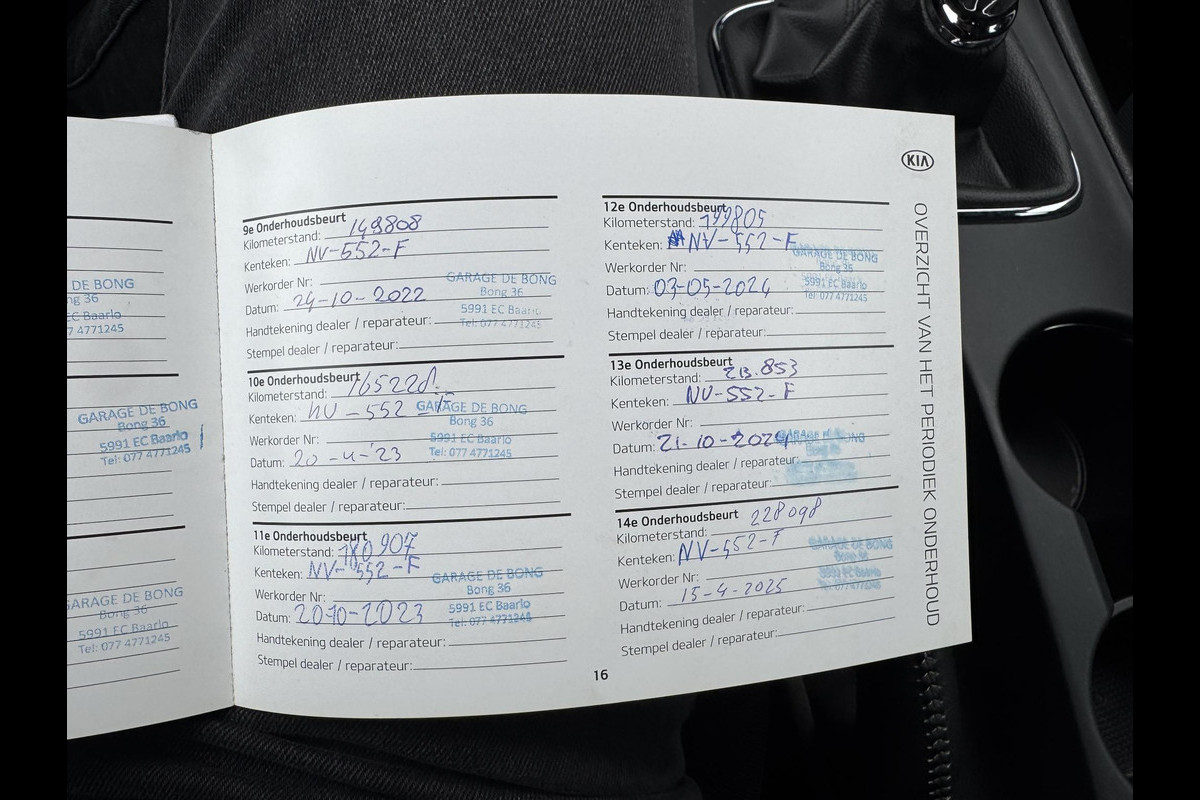 DE BONG
ng 36
EC Baarlo
7 4771245
GARAGE DE BONG
Bong 36
5991 EC Baarlo
Tel: 077 4771245
GARAGE DE BONG
Bong 36
5991 EC Baarlo
Tel: 077 4771245
9e Onderhoudsbeurt
Kilometerstand: 149808
Kenteken: NV-552-F
Werkorder Nr:
Datum: 24-10-2022
GARAGE DE BONG
Bong 36
5991 EC Baarlo
Tel: 077 4771245
Handtekening dealer / reparateur:
Stempel dealer / reparateur:
10e Onderhoudsbeurt
Kilometerstand: 165228
Kenteken: NV-552-F
GARAGE DE BONG
Bong 36
5991 EC Baarlo
Tel: 077 4771245
Werkorder Nr:
Datum: 20-4-'23
Handtekening dealer / reparateur:
Stempel dealer / reparateur:
11e Onderhoudsbeurt
Kilometerstand: 180907
Kenteken: NV-552-F
GARAGE DE BONG
Bong 36
5991 EC Baarlo
Tel: 077 4771245
Werkorder Nr:
Datum: 20-10-2023
Handtekening dealer / reparateur:
Stempel dealer / reparateur:
12e Onderhoudsbeurt
Kilometerstand: 199805
Kenteken: NV-552-F
GARAGE DE BONG
Bong 36
5991 EC Baarlo
Tel: 077 4771245
Werkorder Nr:
Datum: 03-05-2024
Handtekening dealer / reparateur:
Stempel dealer / reparateur:
13e Onderhoudsbeurt
Kilometerstand: 213.853
Kenteken: NV-552-F
Werkorder Nr:
Datum: 21-10-2024
Handtekening dealer / reparateur:
Stempel dealer / reparateur:
14e Onderhoudsbeurt
Kilometerstand: 228098
Kenteken: NV-552-F
GARAGE DE BONG
Werkorder Nr:
Datum: 15-4-2025
Handtekening dealer / reparateur:
Stempel dealer / reparateur:
16
KIA
OVERZICHT VAN HET PERIODIEK ONDERHOUD